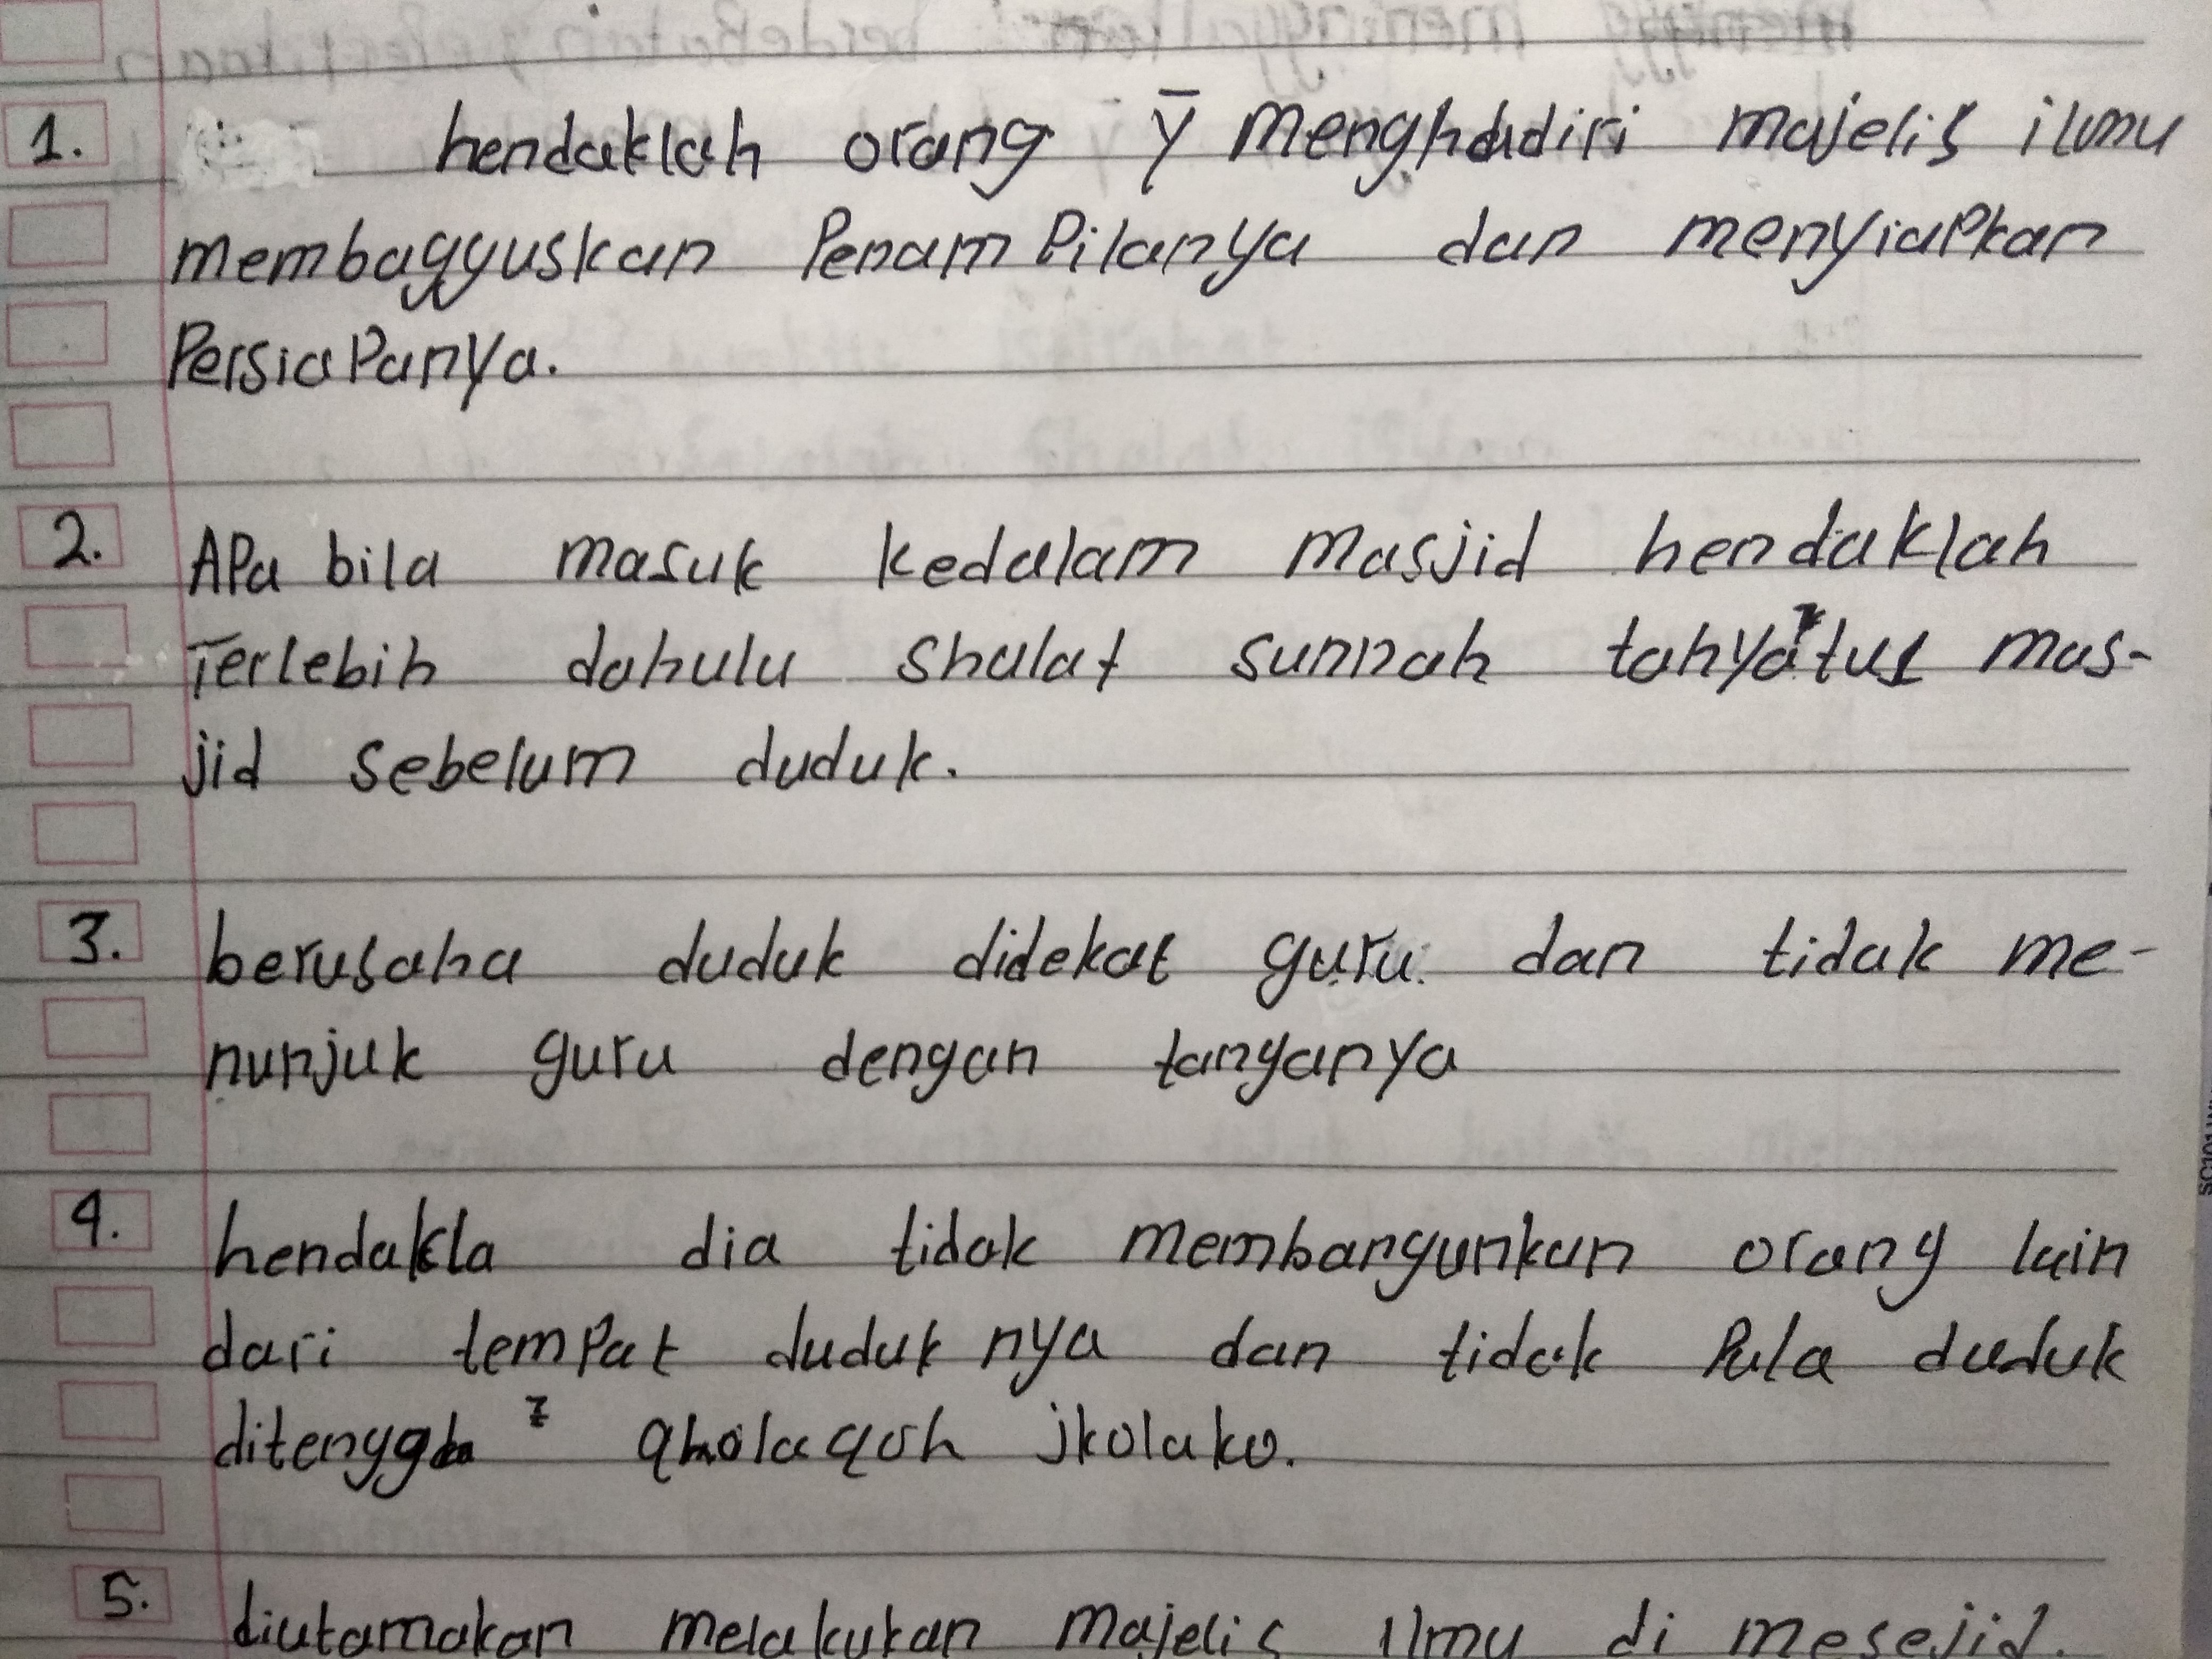 1. hendaklah orang ȳ menghadiri majelis ilmu
membagguskan PenamPilanya dan menyiaPkan
PersiaPanya.
2. APa bila masuk kedalam masjid hendaklah
Terlebih dahulu shalat sunnah tahyatus mas-
jid sebelum duduk.
3. berusaha duduk didekat guru dan tidak me-
nunjuk guru dengan tanganya
4. hendakla dia tidak membangunkan orang lain
dari temPat duduk nya dan tidak Pula duduk
ditengga² qholaqoh jkolako.
5. diutamakan melakukan majelis Ilmu di mesejid.